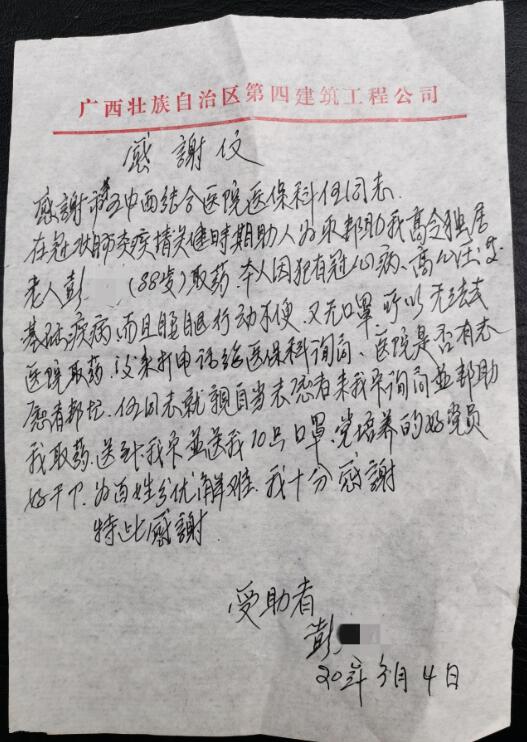 广西壮族自治区第四建筑工程公司
感謝仪
感謝市五中西结合医院医保科任同志
在冠状肺炎疫情关健时期助人为乐邦助我高令独居
老人彭（88岁）取药.本人因犯有冠心病、高心压,等
基础疾病,而且腿眼行动不便、又无口罩所以无法去
医院取药.后来打电话给医保科询问、医院是否有志
愿者邦忙.任同志就親自当志愿者来我家询问並邦助
我取药.送到我家並送我10只口罩.党培养的好党员
好干下.为百姓分优解难.我十分感謝
特此感謝.
受助者
彭
月4日